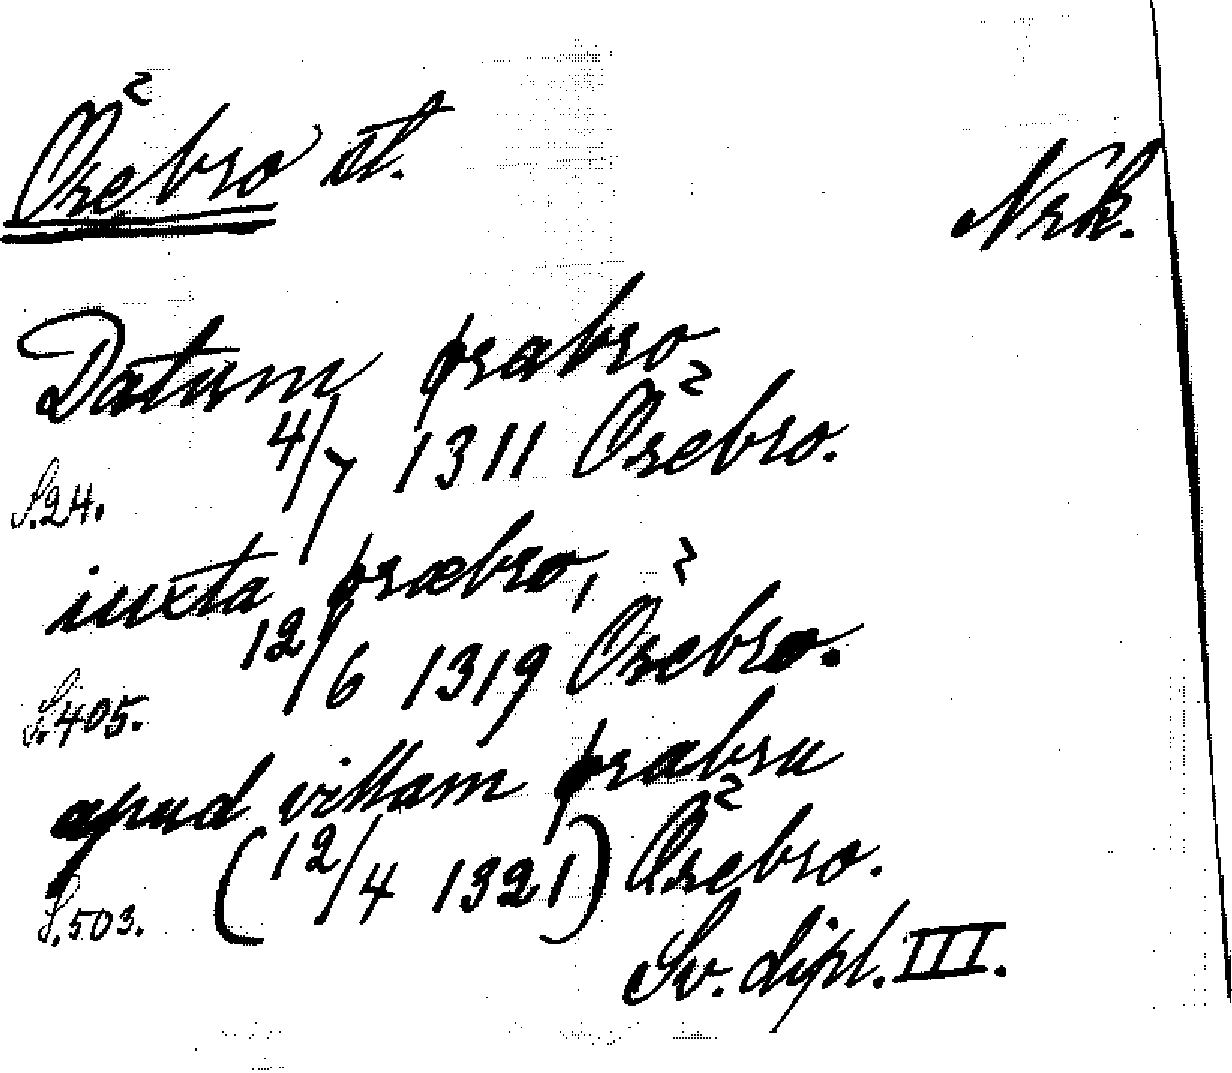 Örebro st.
Nrk.
Datum þrabro
4/7 1311 Örebro.
S.24.
iuxta þræbro,
12/6 1319 Örebro.
S.405.
apud villam þrabru
(12/4 1321) Örebro.
S.503.
Sv. dipl. III.